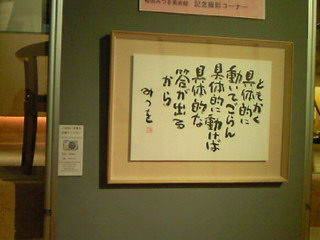 相田みつを美術館 記念撮影コーナー
ともかく
具体的に
動いてごらん
具体的に動けば
具体的な
答が出る
から
みつを